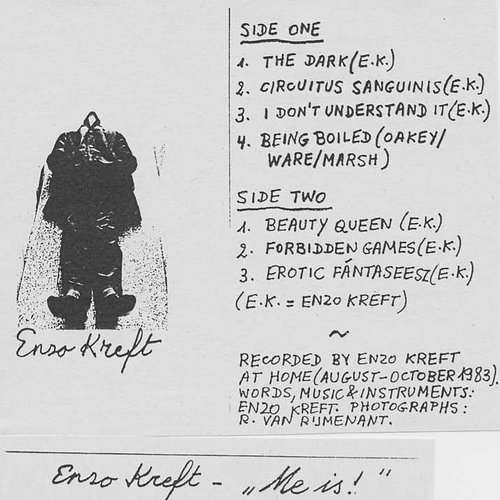 SIDE ONE
1. THE DARK (E.K.)
2. CIRCUITUS SANGUINIS (E.K.)
3. I DON'T UNDERSTAND IT (E.K.)
4. BEING BOILED (OAKEY/
WARE/MARSH)
SIDE TWO
1. BEAUTY QUEEN (E.K.)
2. FORBIDDEN GAMES (E.K.)
3. EROTIC FÁNTASEESZ (E.K.)
(E.K. = ENZO KREFT)
~
RECORDED BY ENZO KREFT
AT HOME (AUGUST-OCTOBER 1983).
WORDS, MUSIC & INSTRUMENTS:
ENZO KREFT. PHOTOGRAPHS:
R. VAN RIJMENANT.
Enzo Kreft
Enzo Kreft - „Me is!"